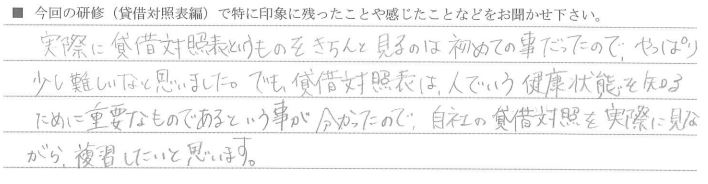 ■ 今回の研修（貸借対照表編）で特に印象に残ったことや感じたことなどをお聞かせ下さい。
実際に貸借対照表というものをきちんと見るのは初めての事だったので、やっぱり
少し難しいなと思いました。でも、貸借対照表は、人でいう健康状態を知る
ために重要なものであるという事が分かったので、自社の貸借対照を実際に見な
がら、複習したいと思います。